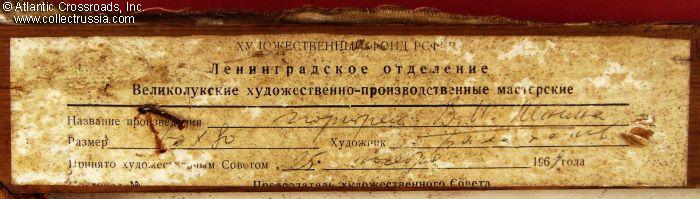 © Atlantic Crossroads, Inc.
www.collectrussia.com
ХУДОЖЕСТВЕННЫЙ ФОНД РСФСР
Ленинградское отделение
Великолукские художественно-производственные мастерские
Название произведения портрет В. И. Ленина
Размер Х 80 Художник
Принято художественным Советом ноября 196 года
Протокол № Председатель художественного Совета